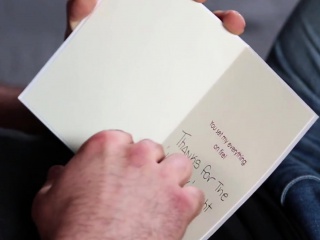 You set my everything
on fire!
Thanks for the